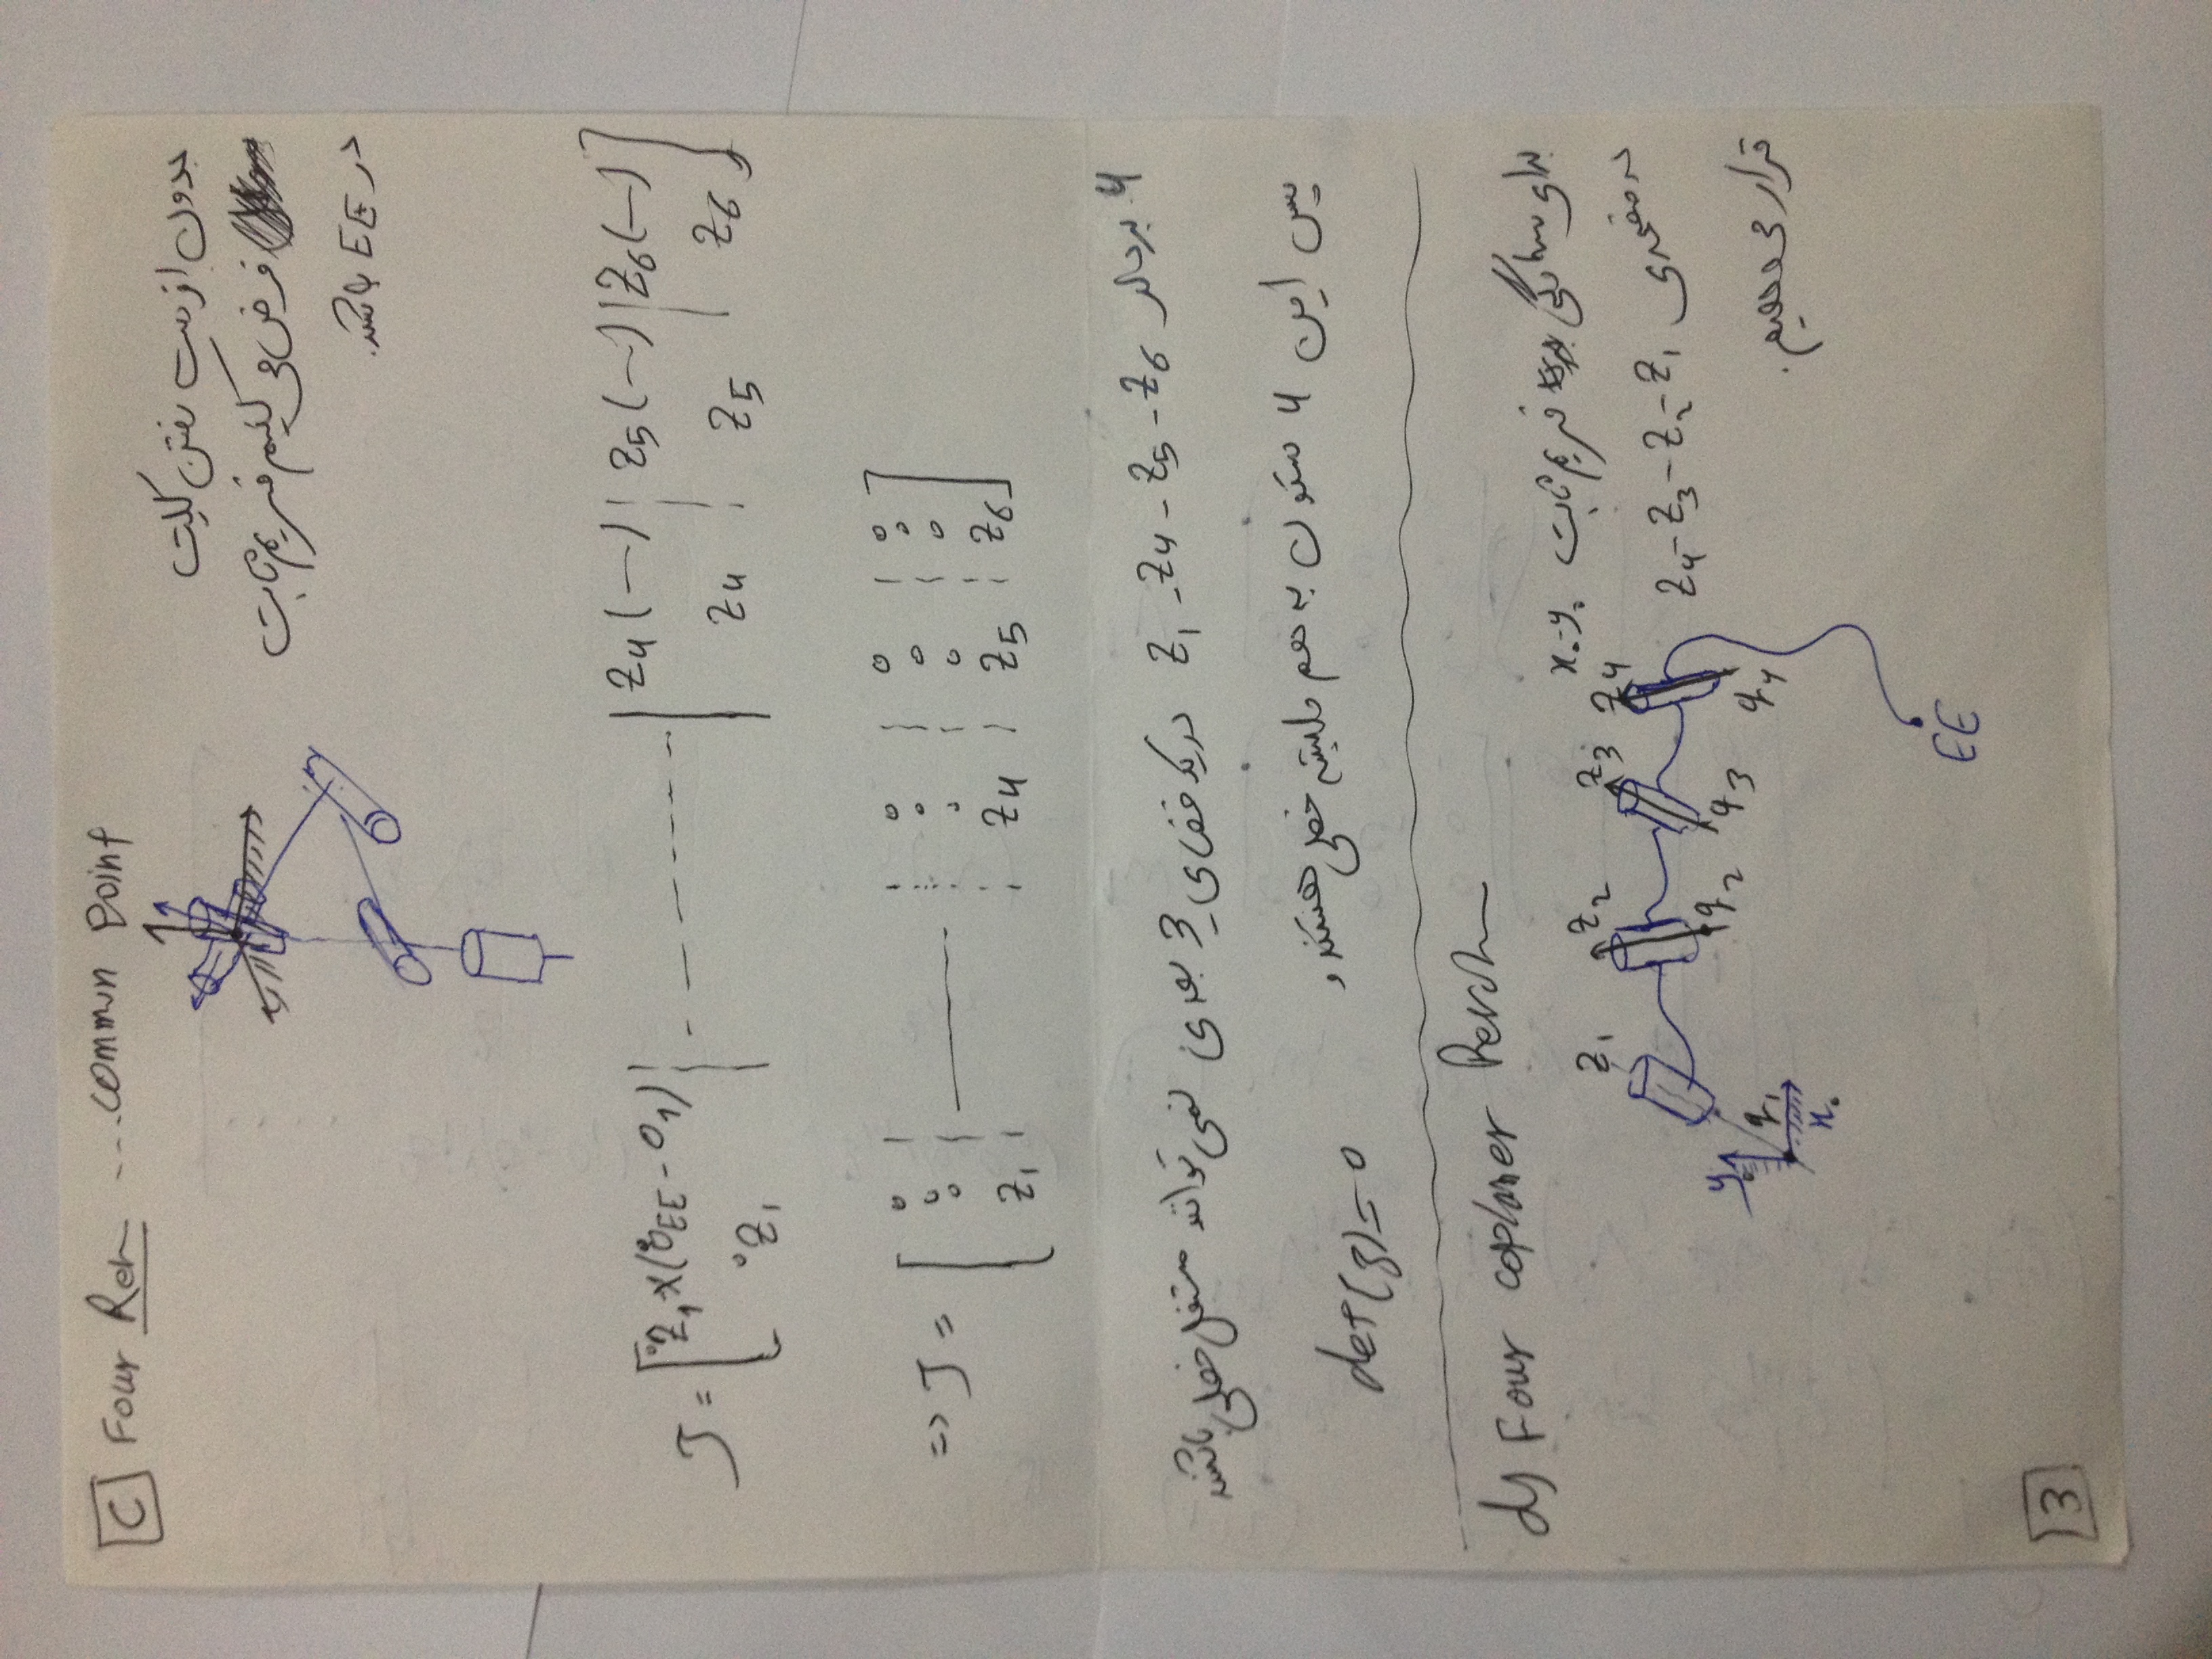 C Four Rev ... commun Point
بدون از دست رفتن کلیت
فرض می کنیم فریم ثابت
در EE باشد.
J = [ °Z₁×(°O_EE - O₁) ¦ - - - - - - | Z₄(—) ¦ Z₅(—) | Z₆(—) ]
°Z₁ Z₄ Z₅ Z₆
=> J = [ 0 0 0 Z₁ ¦ —— ¦ 0 0 0 Z₄ ¦ 0 0 0 Z₅ ¦ 0 0 0 Z₆ ]
4 بردار Z₁ - Z₄ - Z₅ - Z₆ در یک فضای 3 بعدی نمی تواند مستقل خطی باشند
پس این 4 ستون به هم وابسته خطی هستند و
det(J) = 0
d) Four coplaner Revol
برای سادگی فریم ثابت x₀-y₀
در صفحه‌ی Z₄-Z₃-Z₂-Z₁
قرار می دهیم.
Z₁ Z₂ Z₃ Z₄
q₁ q₂ q₃ q₄
y₀
x₀
EE
3